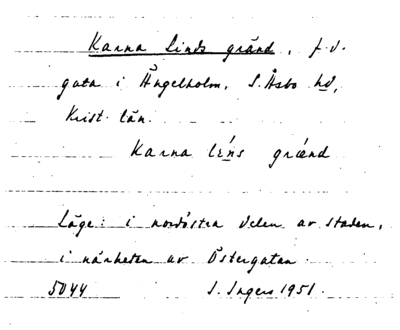 Karna Linds gränd, f.d.
gata i Ängelholm, S. Åsbo hd,
Krist. län.
Karna léns grænd
Läge: i nordöstra delen av staden,
i närheten av Östergatan.
5044 I. Ingers 1951.